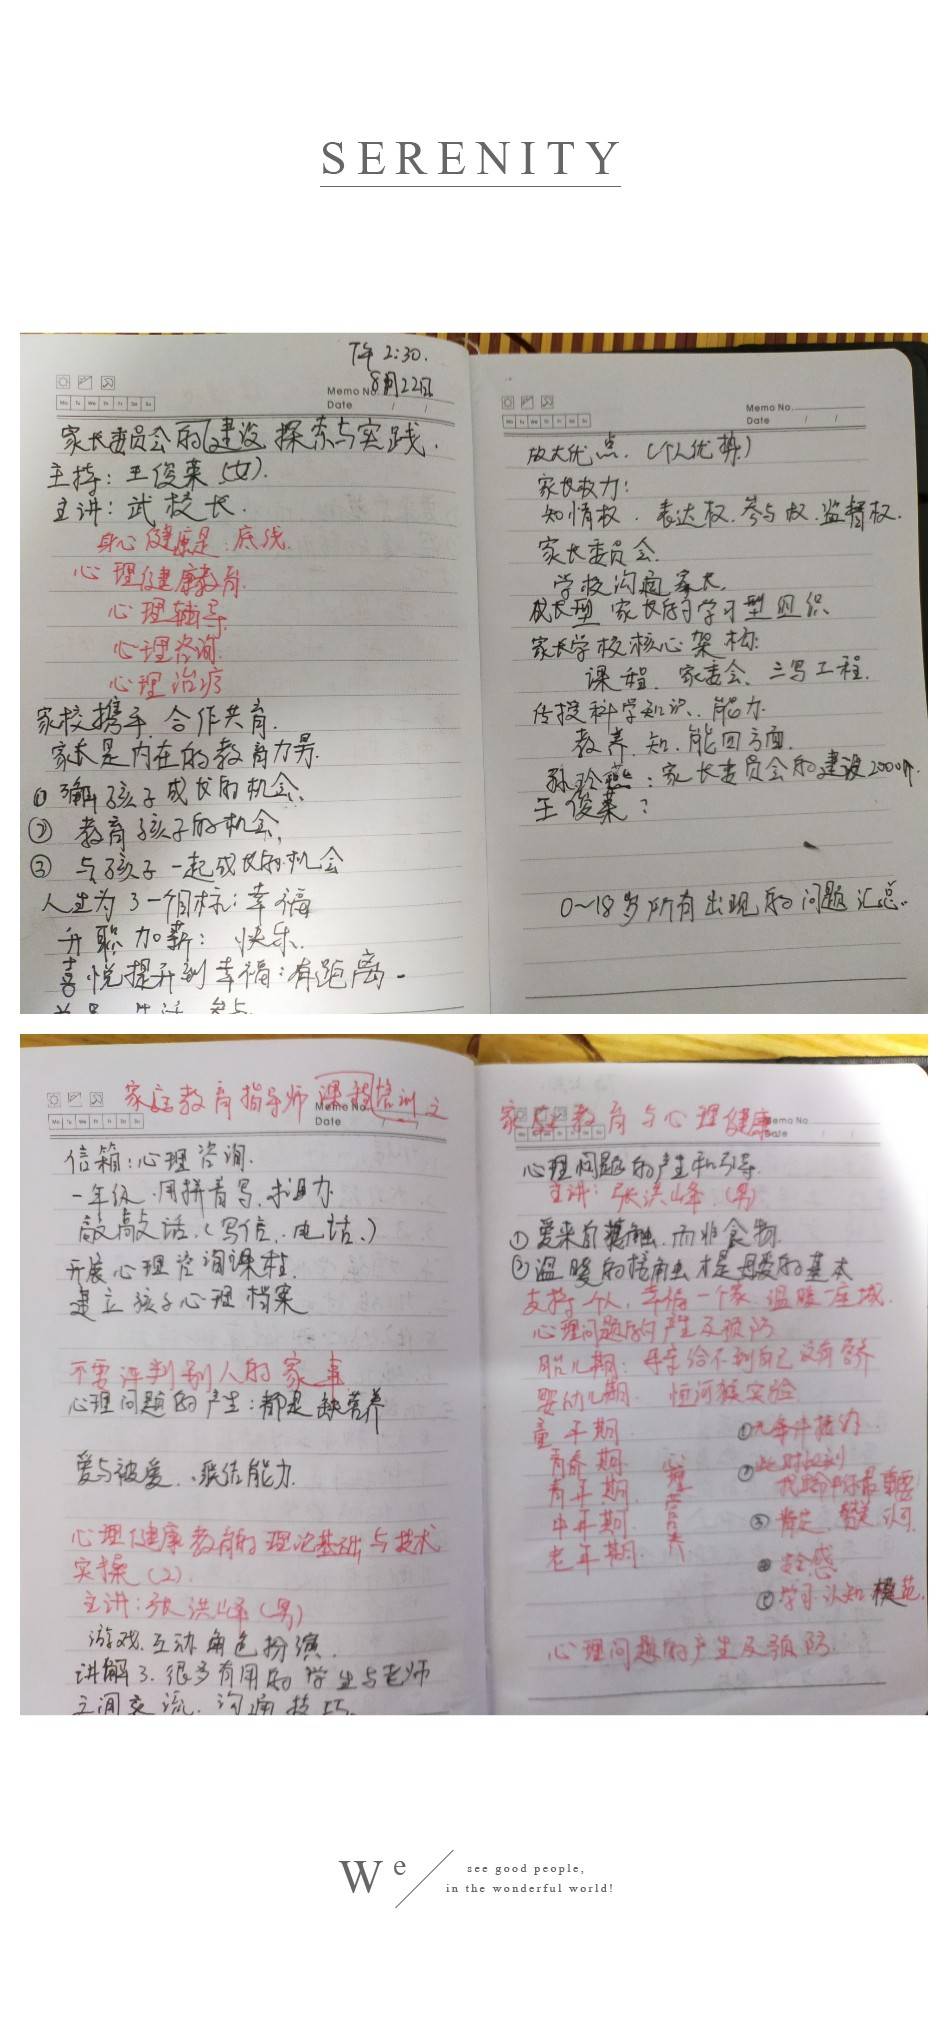 SERENITY
下午2:30.
8月22日
Memo No.
Date / /
Mo Tu We Th Fr Sa Su
家长委员会的建设探索与实践.
主持:王俊英(女).
主讲:武校长.
身心健康是底线.
心理健康教育.
心理辅导
心理咨询.
心理治疗
家校携手 合作共育.
家长是内在的教育力界.
① 了解孩子成长的机会、
② 教育孩子的机会、
③ 与孩子一起成长的机会
人生为了一个目标:幸福
升职加薪: 快乐.
喜悦提升到幸福:有距离-
Memo No.
Date / /
Mo Tu We Th Fr Sa Su
放大优点.(个人优势)
家长权力:
知情权. 表达权.参与权.监督权.
家长委员会.
学校沟通家长.
成长型 家长的学习型组织
家长学校核心架构:
课程. 家委会、三宽工程.
传授科学知识、能力.
教养.知.能四方面.
孙玲燕:家长委员会的建设2000个.
王俊英:
0~18岁所有出现的问题汇总.
家庭教育指导师课程培训之
Memo No.
Date / /
Mo Tu We Th Fr Sa Su
信箱:心理咨询.
一年级.用拼音写.求助力
敲敲话.(写信、电话、)
开展心理咨询课程.
建立孩子心理档案
不要评判别人的家事
心理问题的产生:都是缺营养
爱与被爱、联结能力.
心理健康教育的理论基础与技术
实操(2).
主讲:张洪峰(男)
游戏.互动角色扮演.
讲解了.很多有用的学生与老师
之间交流.沟通技巧.
家庭教育与心理健康
Memo No
Date
心理问题的产生和引导.
主讲:张洪峰.(男)
① 爱来自接触.而非食物.
② 温暖的接触才是母爱的基本
支持一个人,幸福一个家.温暖一座城.
心理问题的产生及预防
胎儿期:母亲给不到自己没有营养
婴幼儿期. 恒河猴实验
童年期.
青春期.
青年期.
中年期.
老年期.
心理营养
①无条件接纳.
②此时此刻
我生命中你最重要
③ 肯定.赞美.认可.
④ 安全感
⑤ 学习.认知.模范.
心理问题的产生及预防.
We
see good people,
in the wonderful world!